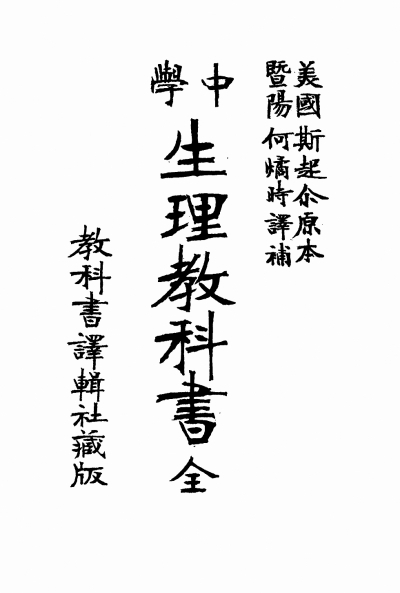 美國斯起尒原本
暨陽何燏時譯補
中學
生理教科書全
教科書譯輯社藏版